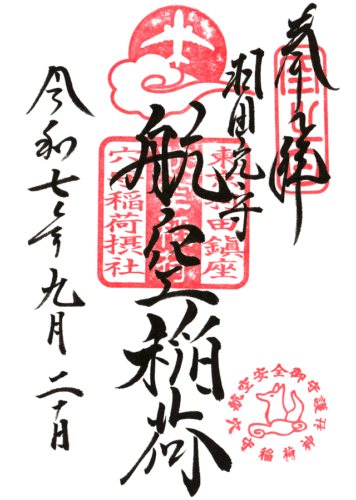 奉拝
羽田穴守
航空稲荷
令和七年九月二十日
東京羽田鎮座
穴守稲荷摂社
航空安全御守護
穴守稲荷神社